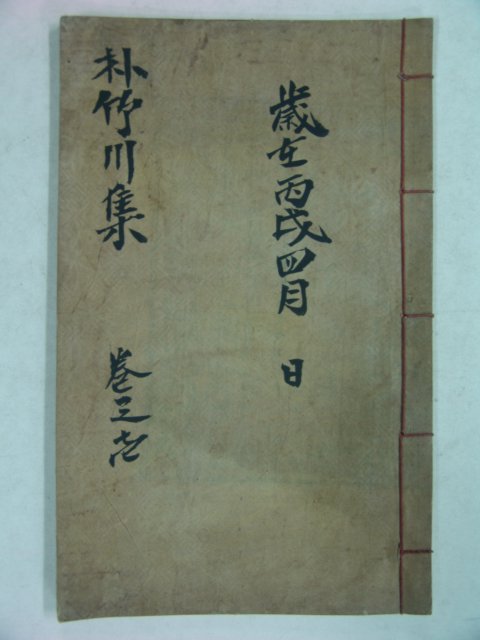 歲在丙戌四月 日
朴竹川集 卷三